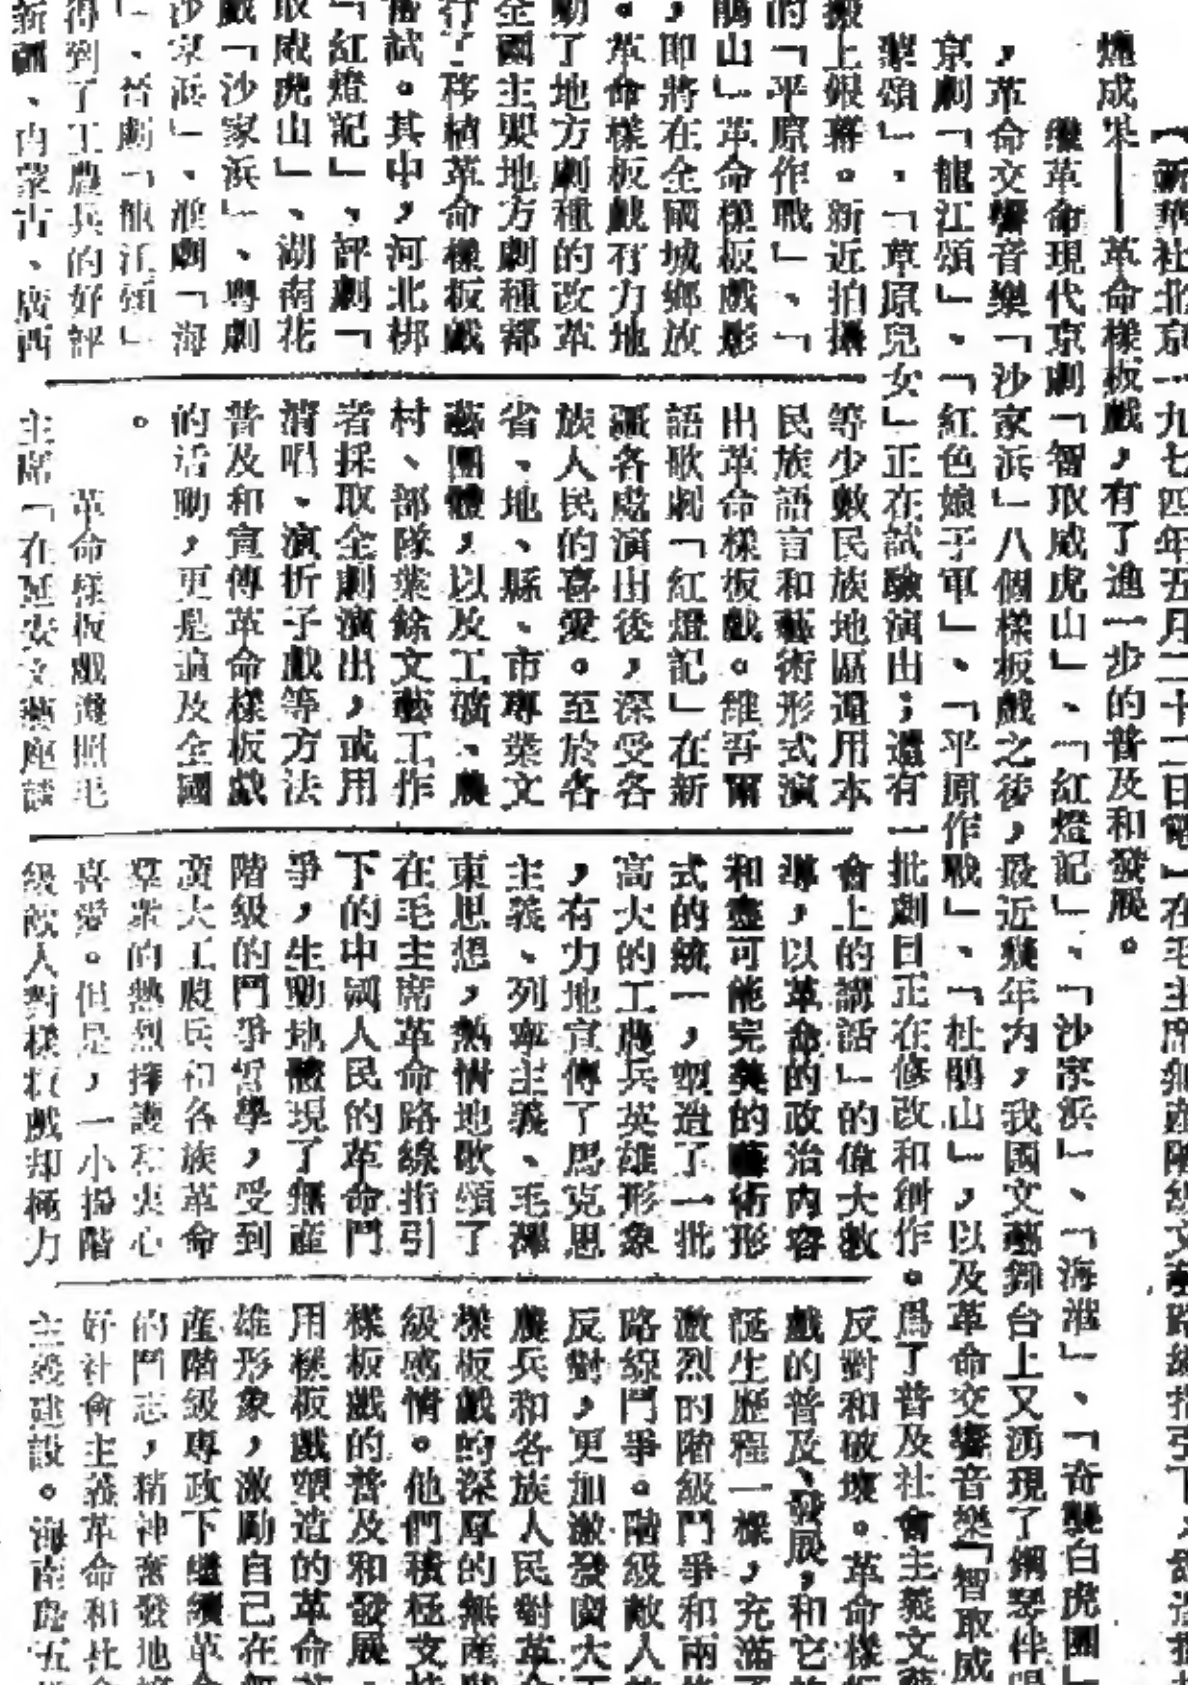 【新華社北京一九七四年五月二十二日電】在毛主席無產階級文藝路線指引下，
煌成果——革命樣板戲，有了進一步的普及和發展。
繼革命現代京劇「智取威虎山」、「紅燈記」、「沙家浜」、「海港」、「奇襲白虎團」
，革命交響音樂「沙家浜」八個樣板戲之後，最近幾年內，我國文藝舞台上又湧現了鋼琴伴唱
京劇「龍江頌」、「紅色娘子軍」、「平原作戰」、「杜鵑山」，以及革命交響音樂「智取威
擊頌」、「草原兒女」正在試驗演出；還有一批劇目正在修改和創作。爲了普及社會主義文藝
搬上銀幕。新近拍攝
的「平原作戰」、「
鵑山」革命樣板戲影
，即將在全國城鄉放
。革命樣板戲有力地
動了地方劇種的改革
全國主要地方劇種都
行了移植革命樣板戲
嘗試。其中，河北梆
「紅燈記」、評劇「
取威虎山」、湖南花
戲「沙家浜」、粵劇
沙家浜」、淮劇「海
」、晉劇「龍江頌」
得到了工農兵的好評
新疆、內蒙古、廣西
等少數民族地區還用本
民族語言和藝術形式演
出革命樣板戲。維吾爾
語歌劇「紅燈記」在新
疆各處演出後，深受各
族人民的喜愛。至於各
省、地、縣、市專業文
藝團體，以及工礦、農
村、部隊業餘文藝工作
者採取全劇演出，或用
清唱、演折子戲等方法
普及和宣傳革命樣板戲
的活動，更是遍及全國
。
革命樣板戲遵照毛
主席「在延安文藝座談
會上的講話」的偉大教
導，以革命的政治內容
和盡可能完美的藝術形
式的統一，塑造了一批
高大的工農兵英雄形象
，有力地宣傳了馬克思
主義、列寧主義、毛澤
東思想，熱情地歌頌了
在毛主席革命路線指引
下的中國人民的革命鬥
爭，生動地體現了無產
階級的鬥爭哲學，受到
廣大工農兵和各族革命
羣衆的熱烈擁護和衷心
喜愛。但是，一小撮階
級敵人對樣板戲却極力
反對和破壞。革命樣板
戲的普及、發展，和它的
誕生歷程一樣，充滿了
激烈的階級鬥爭和兩條
路線鬥爭。階級敵人的
反對，更加激發廣大工
農兵和各族人民對革命
樣板戲的深厚的無產階
級感情。他們積極支持
樣板戲的普及和發展，
用樣板戲塑造的革命英
雄形象，激勵自己在無
產階級專政下繼續革命
的鬥志，精神奮發地搞
好社會主義革命和社會
主義建設。海南島五